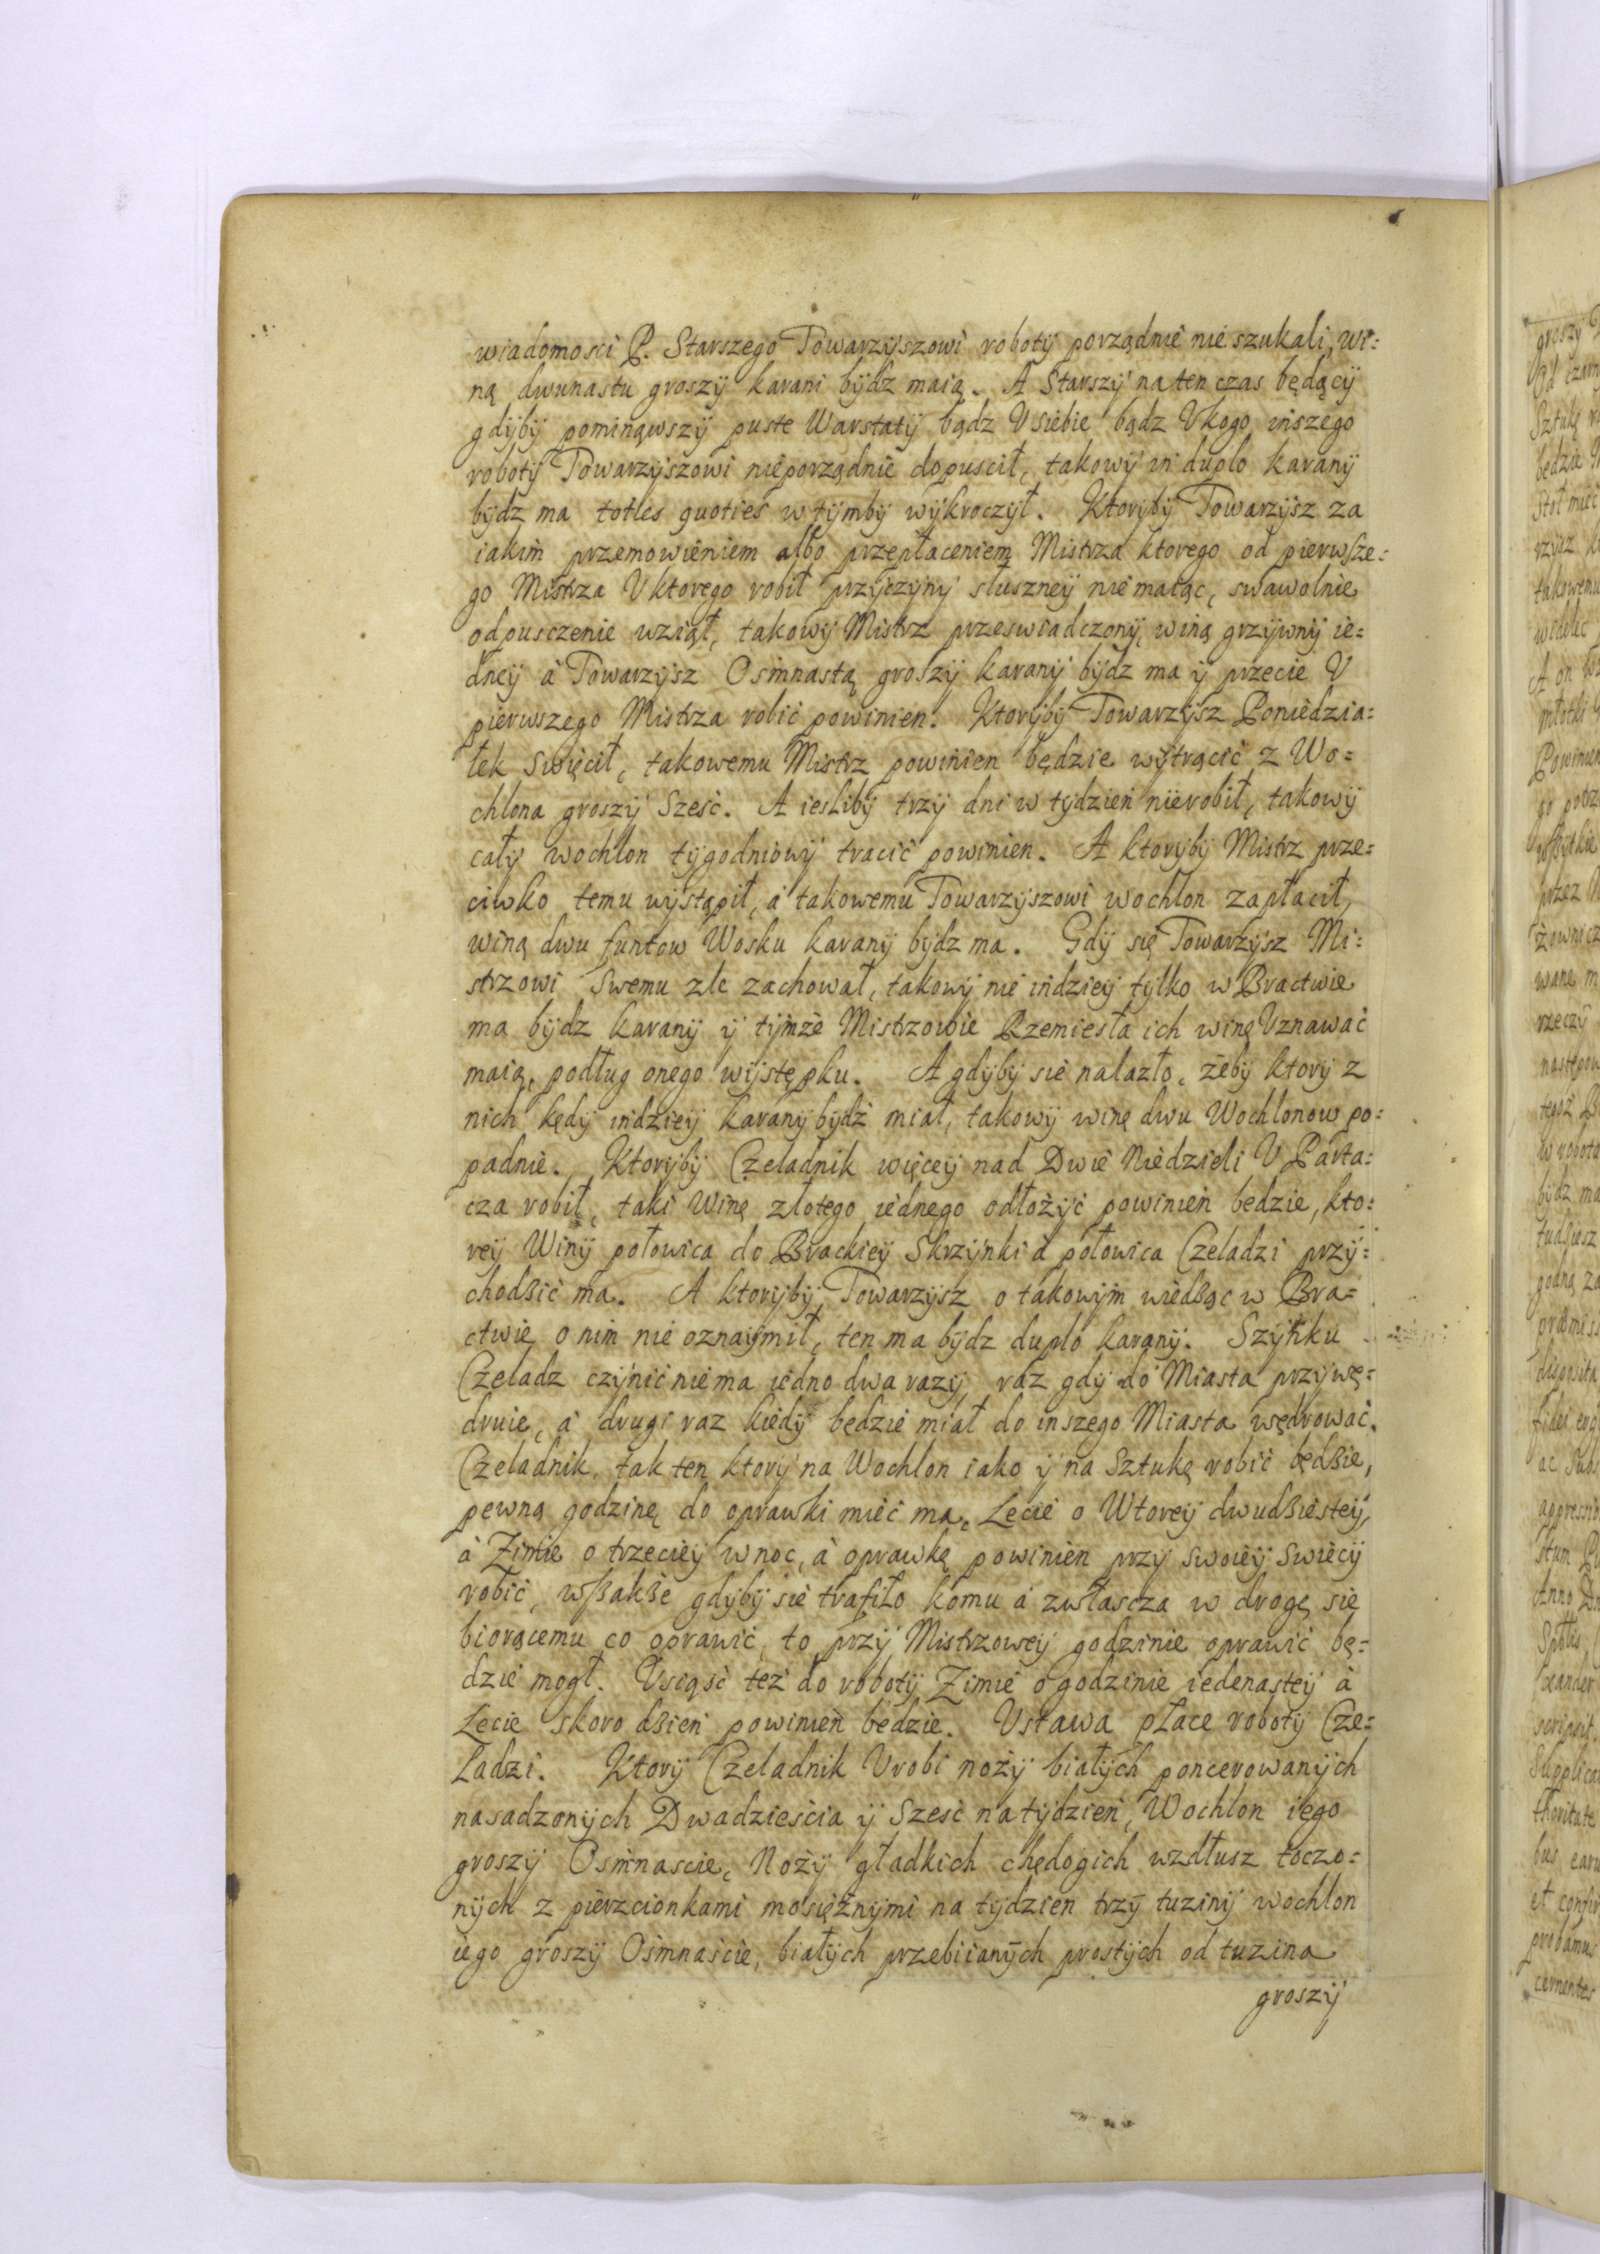 wiadomosci P. Starszego Towarzyszowi roboty porządnie nie szukali, wi=
ną dwunastu groszy karani bydz maią. A Starszy na ten czas będący
gdyby pominąwszy puste Warstaty bądz V siebie bądz V kogo inszego
roboty Towarzyszowi nieporządnie dopuscił, takowy in duplo karany
bydz ma toties quoties w tymby wykroczył. Ktoryby Towarzysz za
iakim przemowieniem albo przepłaceniem Mistrza ktorego od pierwsze=
go Mistrza V ktorego robił przyczyny słuszney nie maiąc, swawolnie
odpusczenie wziął, takowy Mistrz przeswiadczony, winą grzywny ie=
dney à Towarzysz Osmnastą groszy karany bydz ma y przecie V
pierwszego Mistrza robić powinien. Ktoryby Towarzysz Poniedzia=
łek Swięcił, takowemu Mistrz powinien będzie wytrącić z Wo=
chlona groszy Szesć. A iesliby trzy dni w tydzień nierobił, takowy
cały wochlon tygodniowy tracić powinien. A ktoryby Mistrz prze=
ciwko temu wystąpił, à takowemu Towarzyszowi wochlon zapłacił,
winą dwu funtow Wosku karany bydz ma. Gdy się Towarzysz Mi=
strzowi Swemu zle zachował, takowy nie indziey tylko w Bractwie
ma bydz karany y tymże Mistrzowie Rzemiesła ich winę Vznawać
maią, podług onego występku. A gdyby sie nalazło, żeby ktory z
nich kędy indziey karany bydź miał, takowy winę dwu Wochlonow po=
padnie. Ktoryby Czeladnik więcey nad Dwie Niedzieli V Parta=
cza robił, taki Winę złotego iednego odłożyć powinień bedzie, kto=
rey Winy połowica do Brackiey Skrzynki à połowica Czeladzi przy=
chodzić ma. A ktoryby Towarzysz o takowym wiedząc w Bra=
ctwie o nim nie oznaymił, ten ma bydz duplo karany. Szynku
Czeladz czynić niema iedno dwa razy, raz gdy do Miasta przywę=
druie, à drugi raz kiedy będzie miał do inszego Miasta wędrować.
Czeladnik, tak ten ktory na Wochlon iako y na Sztukę robić będzie,
pewną godzinę do oprawki mieć ma, Lecie o Wtorey dwudziestey,
à Zimie o trzeciey w noc, à oprawkę powinien przy swoiey Swiecy
robić, wszakże gdyby sie trafiło komu à zwłascza w drogę się
biorącemu co oprawić, to przy Mistrzowey godzinie oprawić bę=
dzie mogł. Vsiąść też do roboty Zimie o godzinie iedenastey à
Lecie skoro dzień powinien bedzie. Vstawa płace roboty Cze=
Ladzi. Ktory Czeladnik Vrobi noży białych poncerowanych
nasadzonych Dwadzieścia y Szesć na tydzień, Wochlon iego
groszy Osmnascie, Noży gładkich chędogich wzdłusz toczo=
nych z pierzcionkami mosiężnymi na tydzien trzy tuziny wochlon
iego groszy Ośmnaście, białych przebiianych prostych od tuzina
groszy